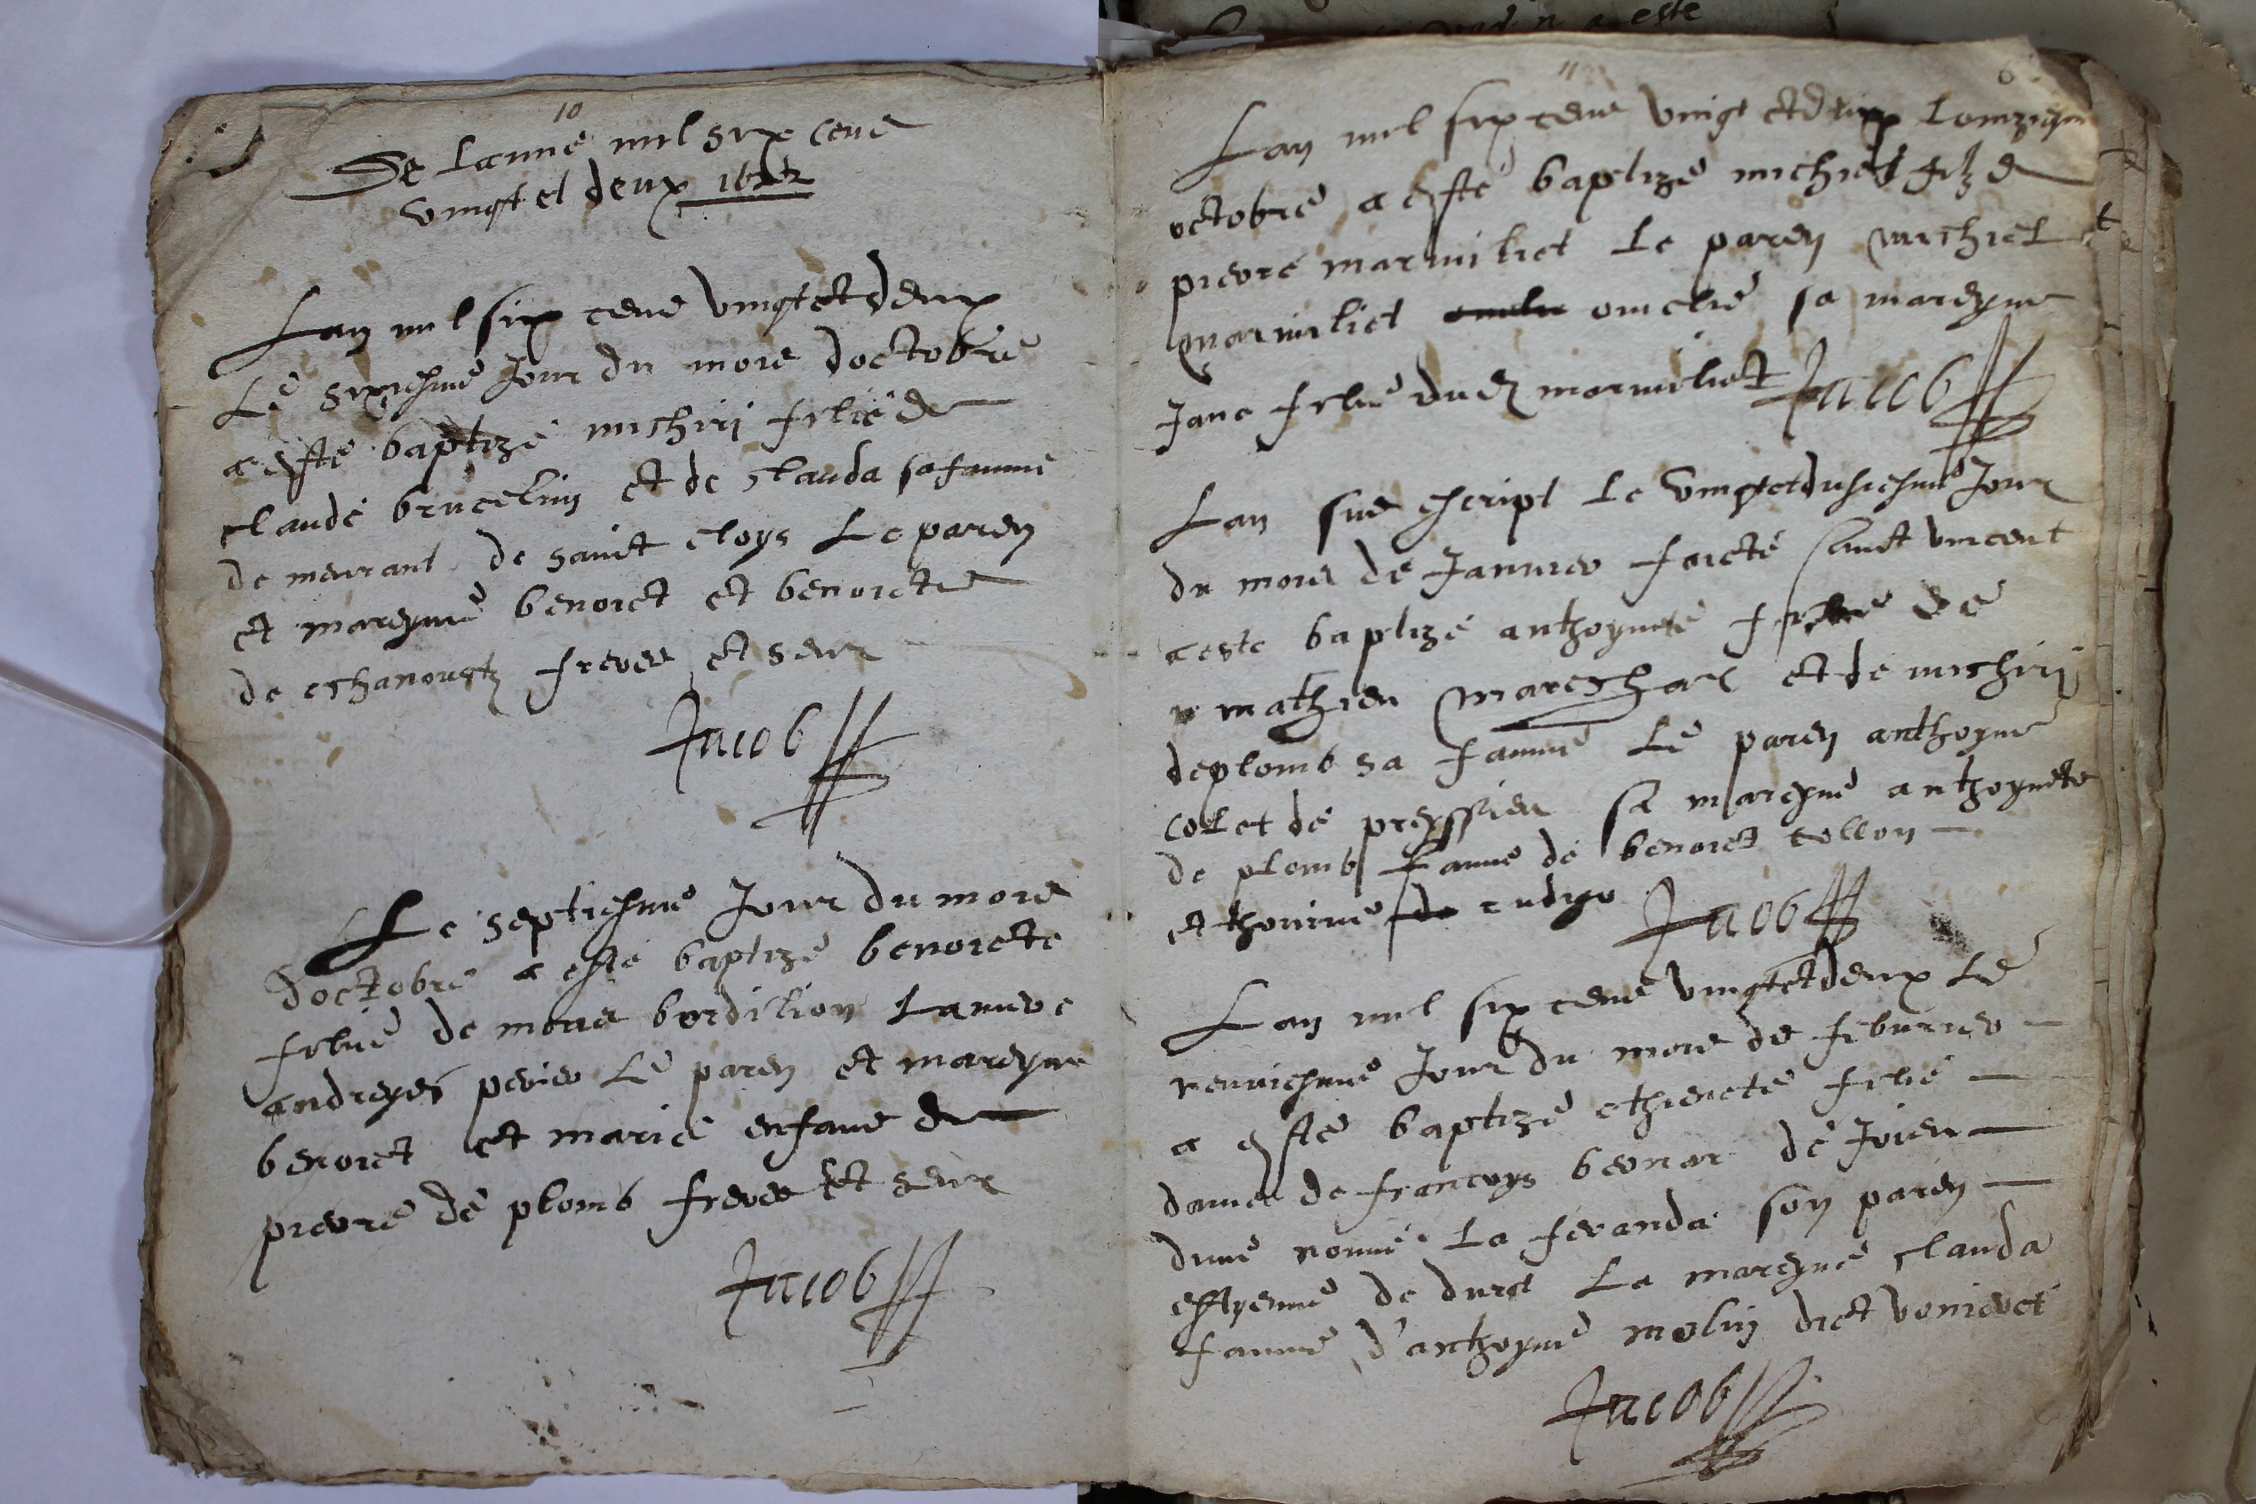 10
De lanne mil six cens
vingt et deux 1622
Lan mil six cens vingt et deux
Le sixiesme Jour du mois doctobre
a esté baptizé michiri fillie de
claude brucelin et de clauda sa famme
de meurant de sainct eloys Le parin
et mareyne benoict et benoicte
de freres et seur
Jacob
Le septiesme Jour du mois
doctobre a esté baptizé benoicte
fillie de bordilion
andreyes perier Le parin et mareyne
benoict et marie enfans de
pierre de plomb freres et seur
Jacob
11
Lan mil six cens vingt et deux
octobre a esté baptizé michiel filz de
pierre marmiliet Le parin michiel
marmiliet sa mareyne
Jane fillie dud marmiliet Jacob
Lan sus escript Le vingt et dusiesme Jour
du mois de Januier sainct vincent
a esté baptizé anthoynete fillie de
mathieu mareschal et de michiri
deplomb sa famme Le parin anthoyne
colet de preyssieu sa mareyne anthoynete
de plomb famme de benoict collon
et
Jacob
Lan mil six cens vingt et deux Le
neuviesme Jour du mois de feburier
a esté baptizé ethienete fillie
de francoys bernar de Joieu
dune nommé la feranda son parin
estyenne de duret La mareyne clauda
famme d'anthoyne molin dict
Jacob